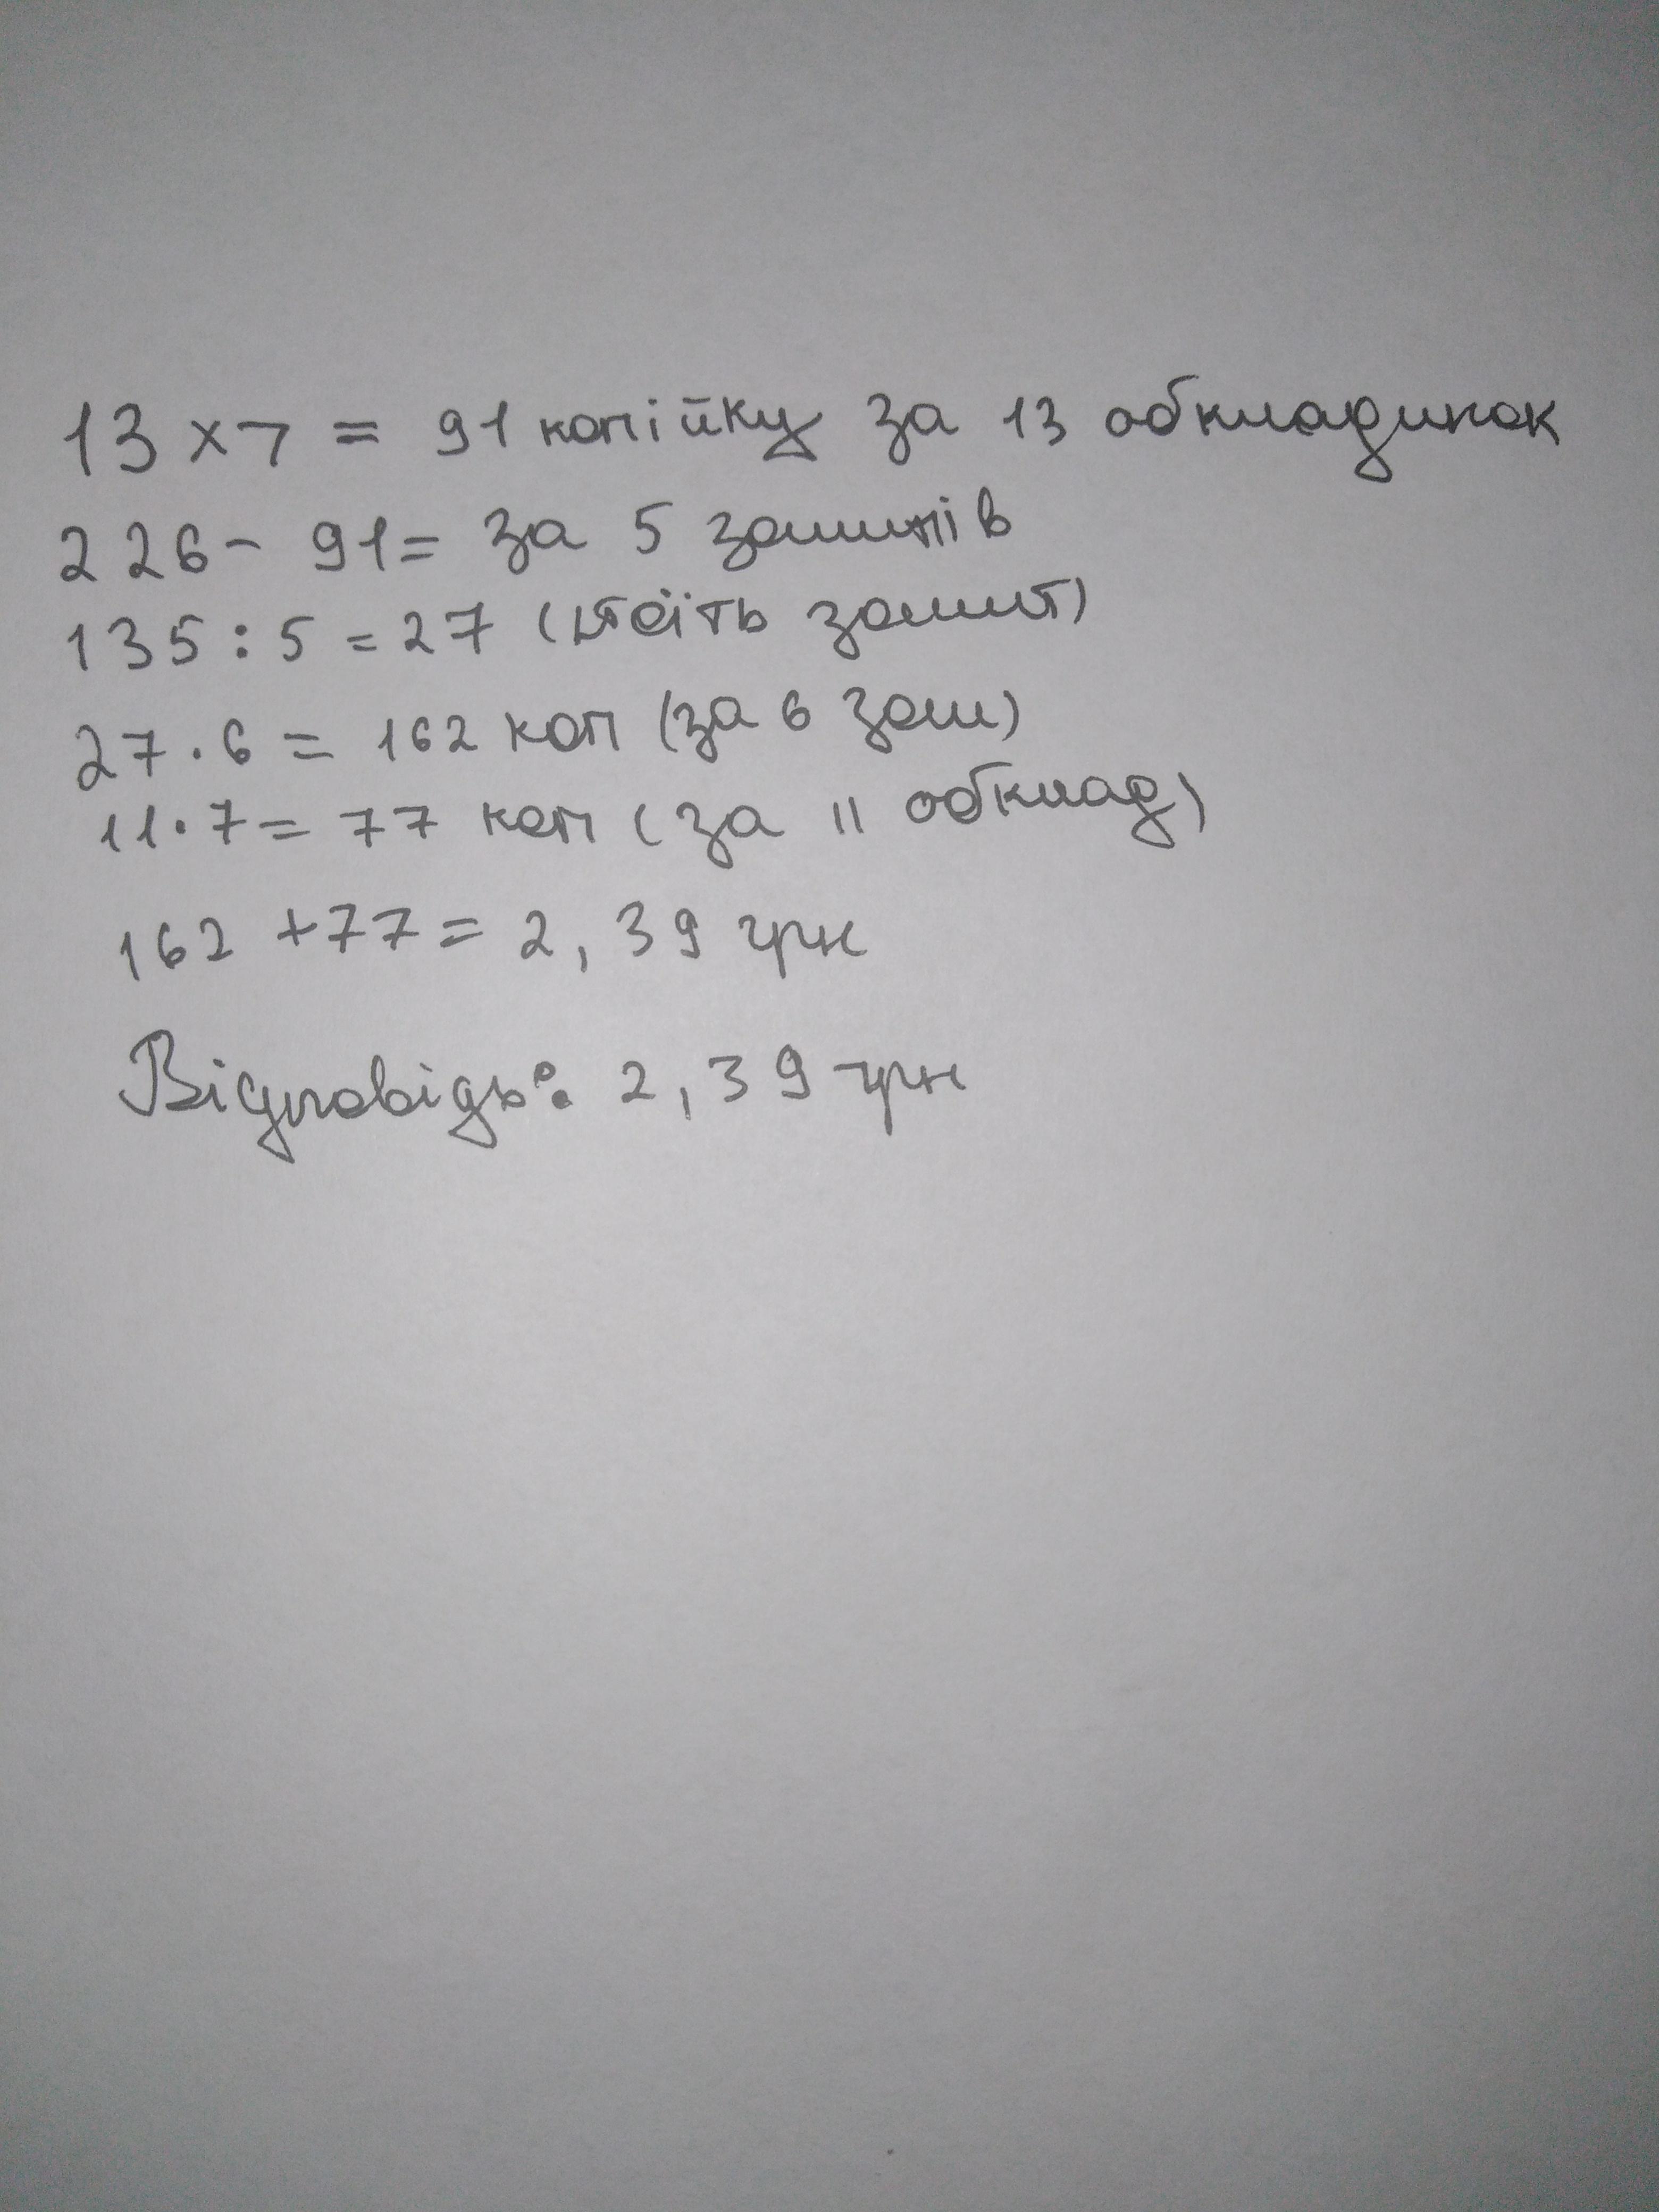 13 × 7 = 91 копійку за 13 обкладинок
226 - 91 = за 5 зошитів
135 : 5 = 27 ( зошит)
27 · 6 = 162 коп (за 6 зош)
11 · 7 = 77 коп (за 11 обклад)
162 + 77 = 2,39 грн
Відповідь: 2,39 грн